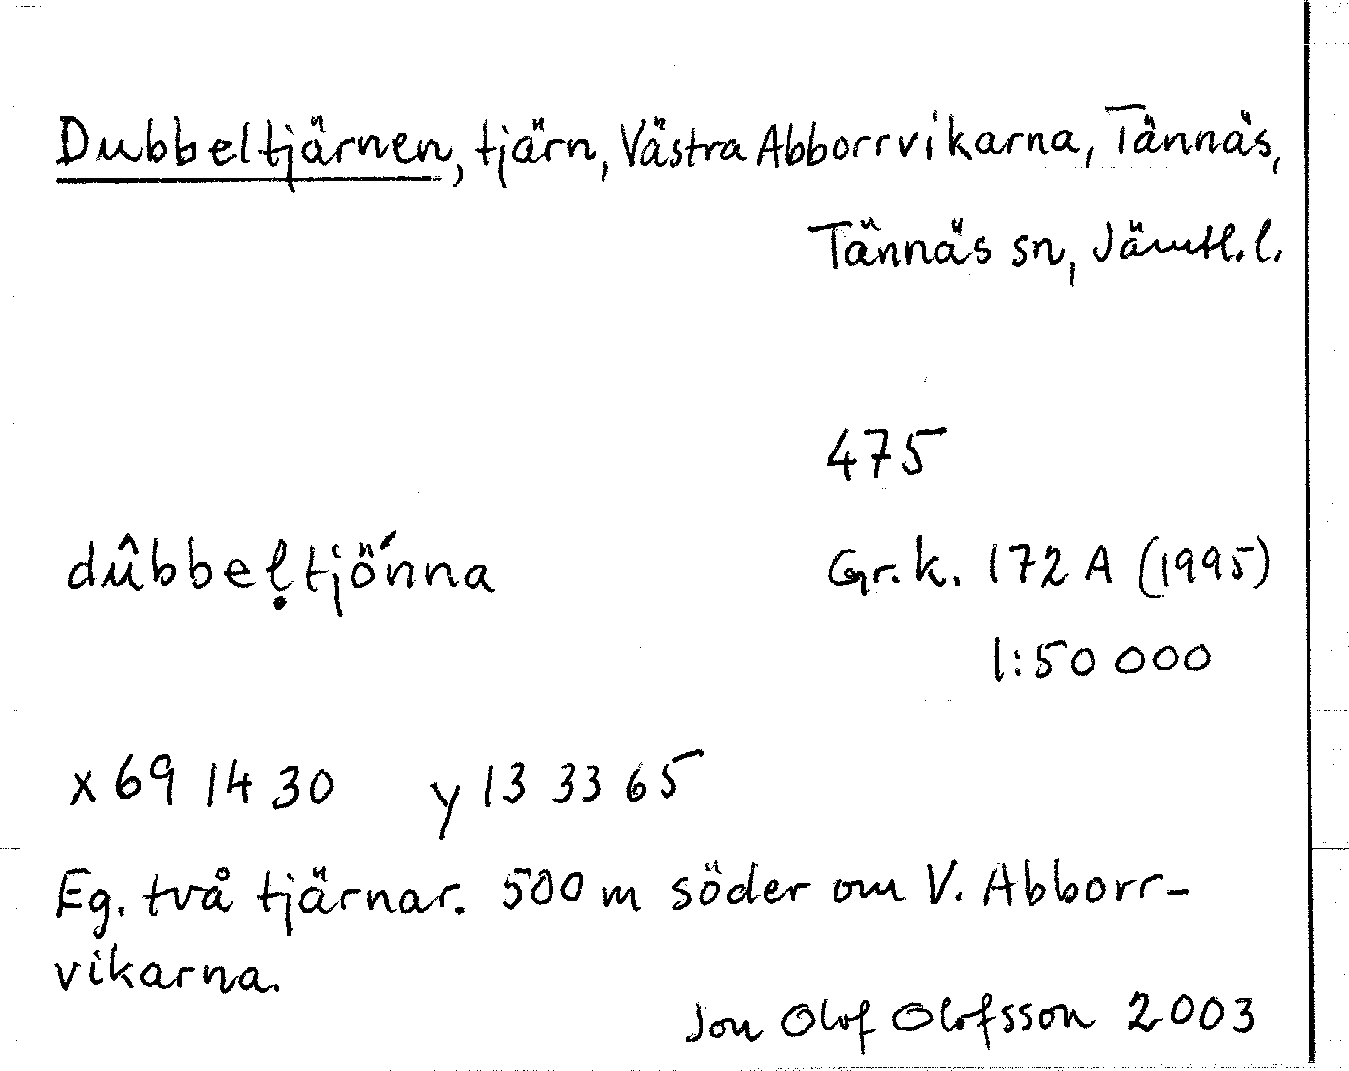 Dubbeltjärnen, tjärn, Västra Abborrvikarna, Tännäs,
Tännäs sn, Jämtl. l.
475
dûbbeḷtjö́nna Gr.k. 172 A (1995)
1:50 000
x 69 14 30 y 13 33 65
Eg. två tjärnar. 500 m söder om V. Abborr-
vikarna.
Jon Olof Olofsson 2003